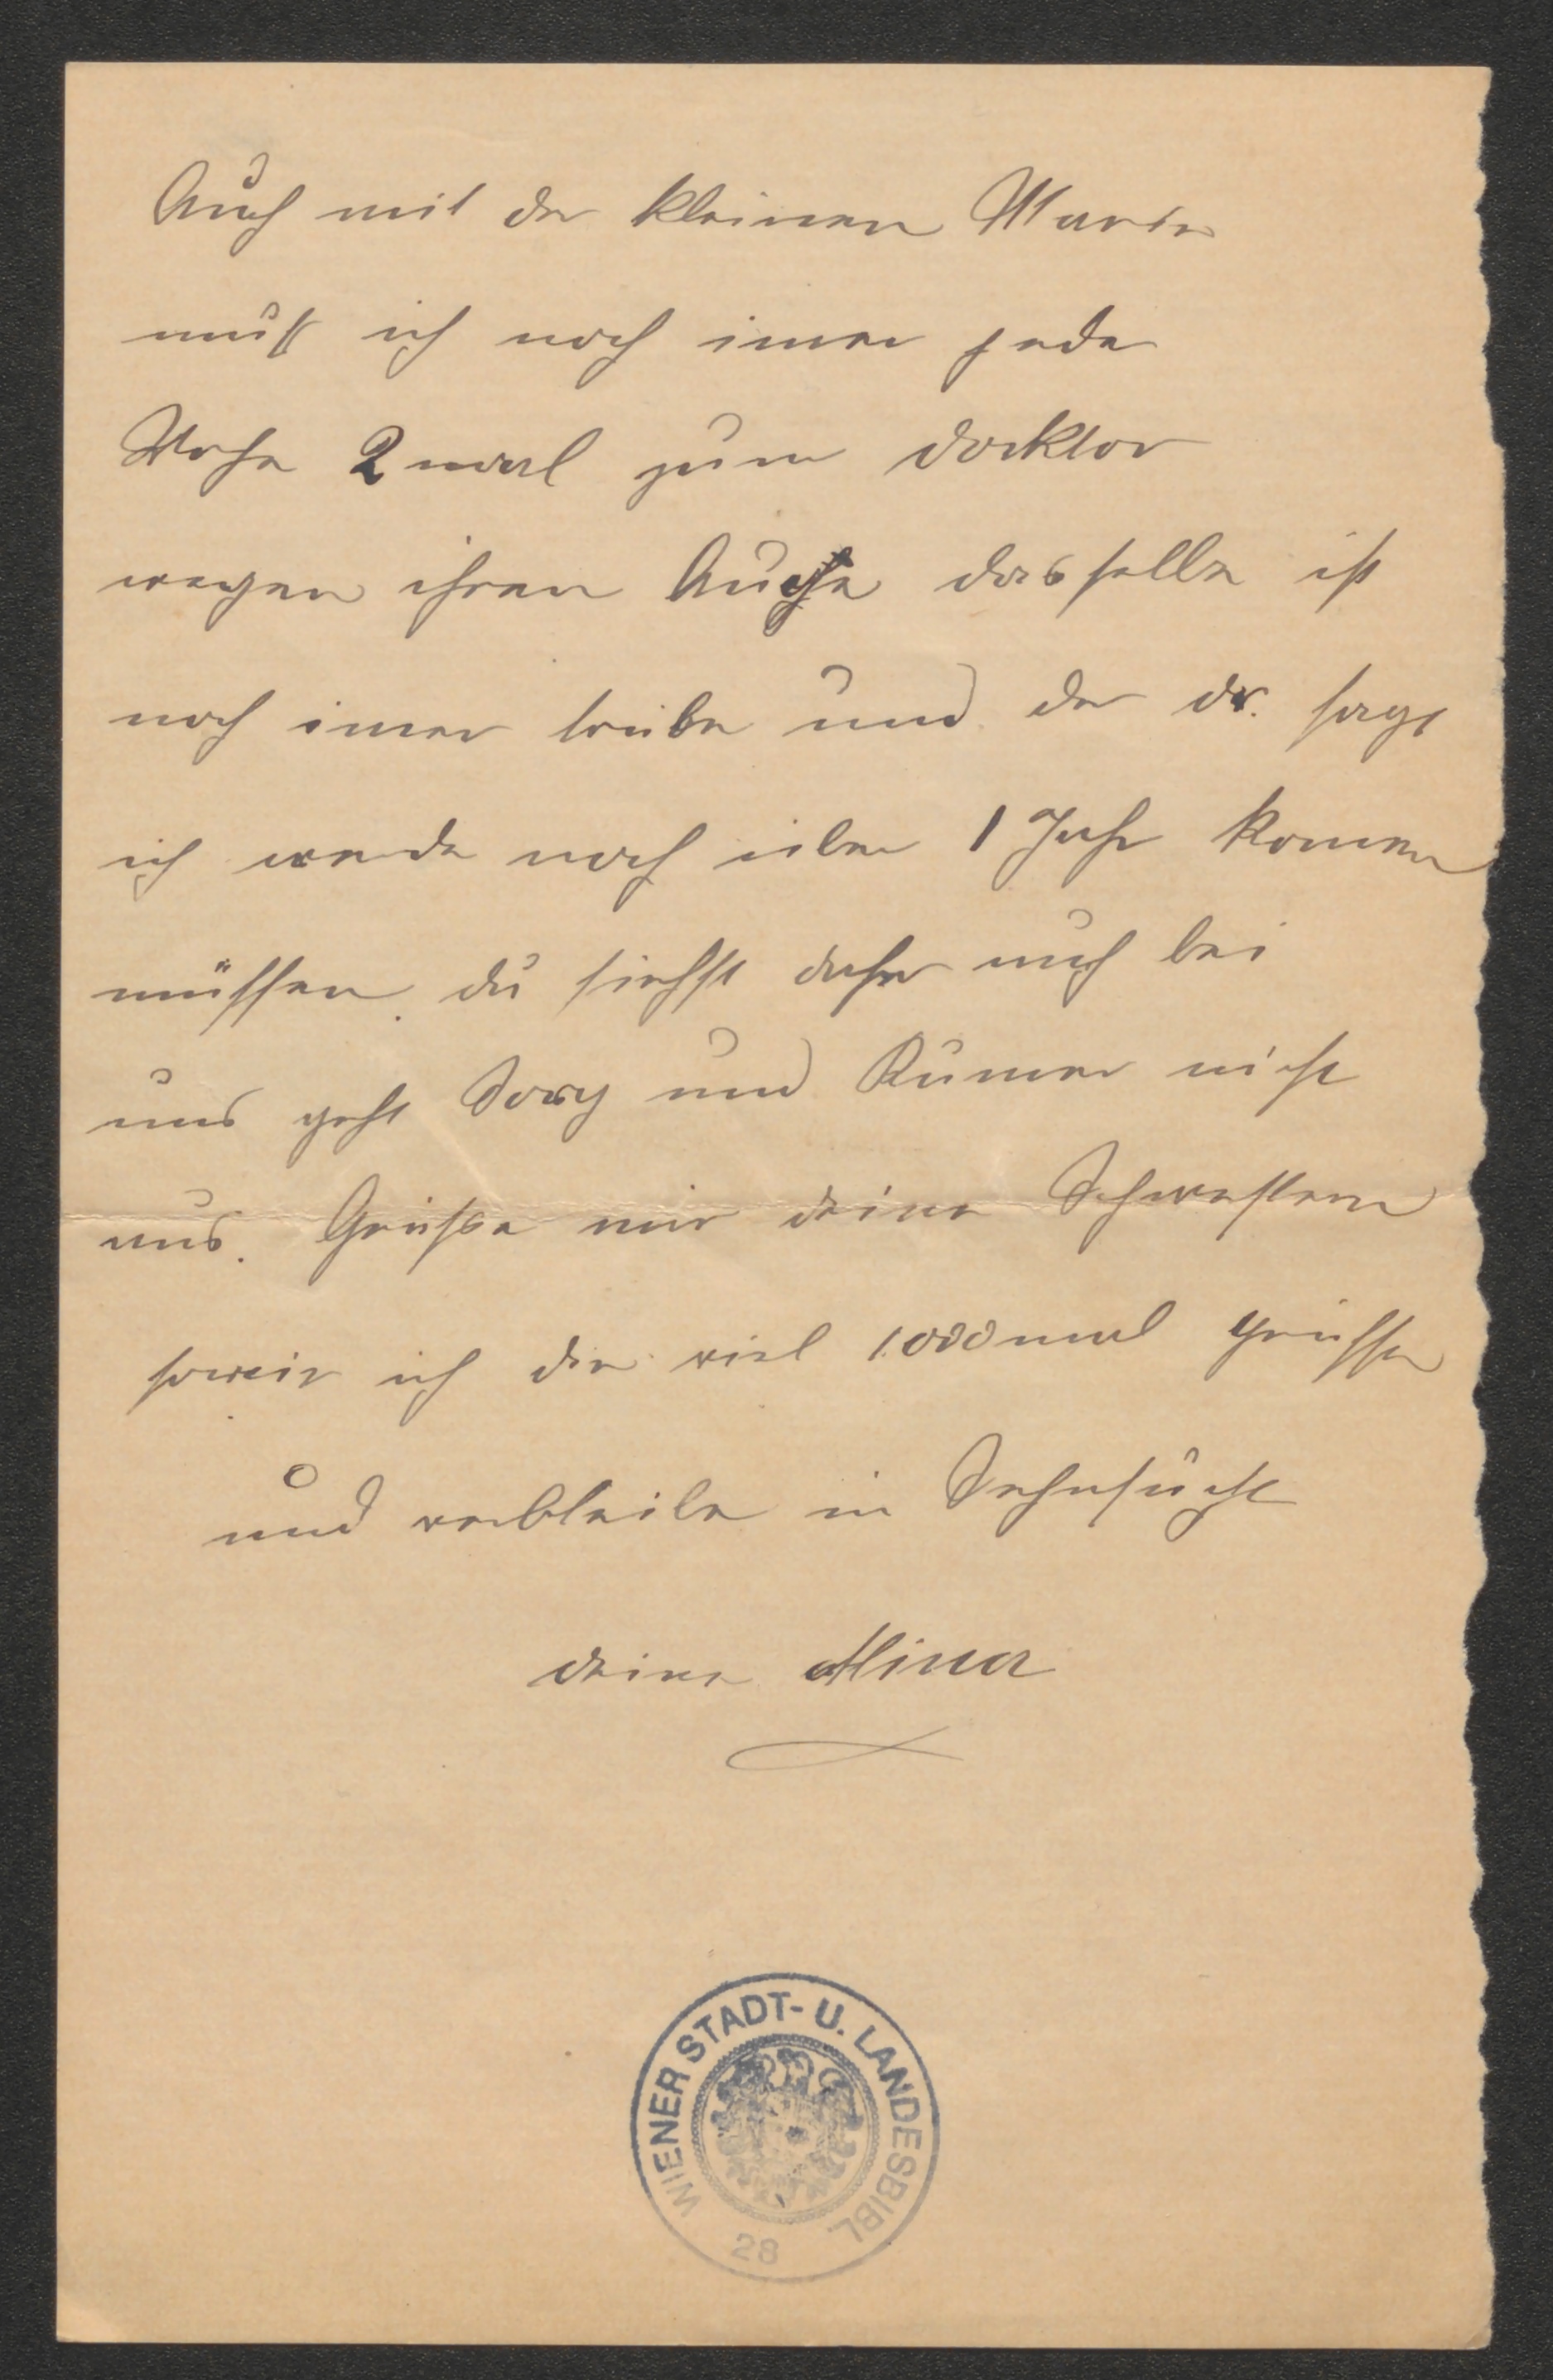 Auch mit der kleinen Marie
muß ich noch imer jede
Woche 2 mal zum docktor
wegen ihren Auge dasselbe ist
noch imer trübe und der dr. sagt
ich werde noch über 1 Jahr komen
müssen. du siehst daher auch bei
uns geht Sorg und Kumer nicht
aus. Grüße mir deine Schwestern
soweit ich dir viel 1000mal grüsse
und verbleibe in Sehnsucht
deine Mina
WIENER STADT- U. LANDESBIBL.
28